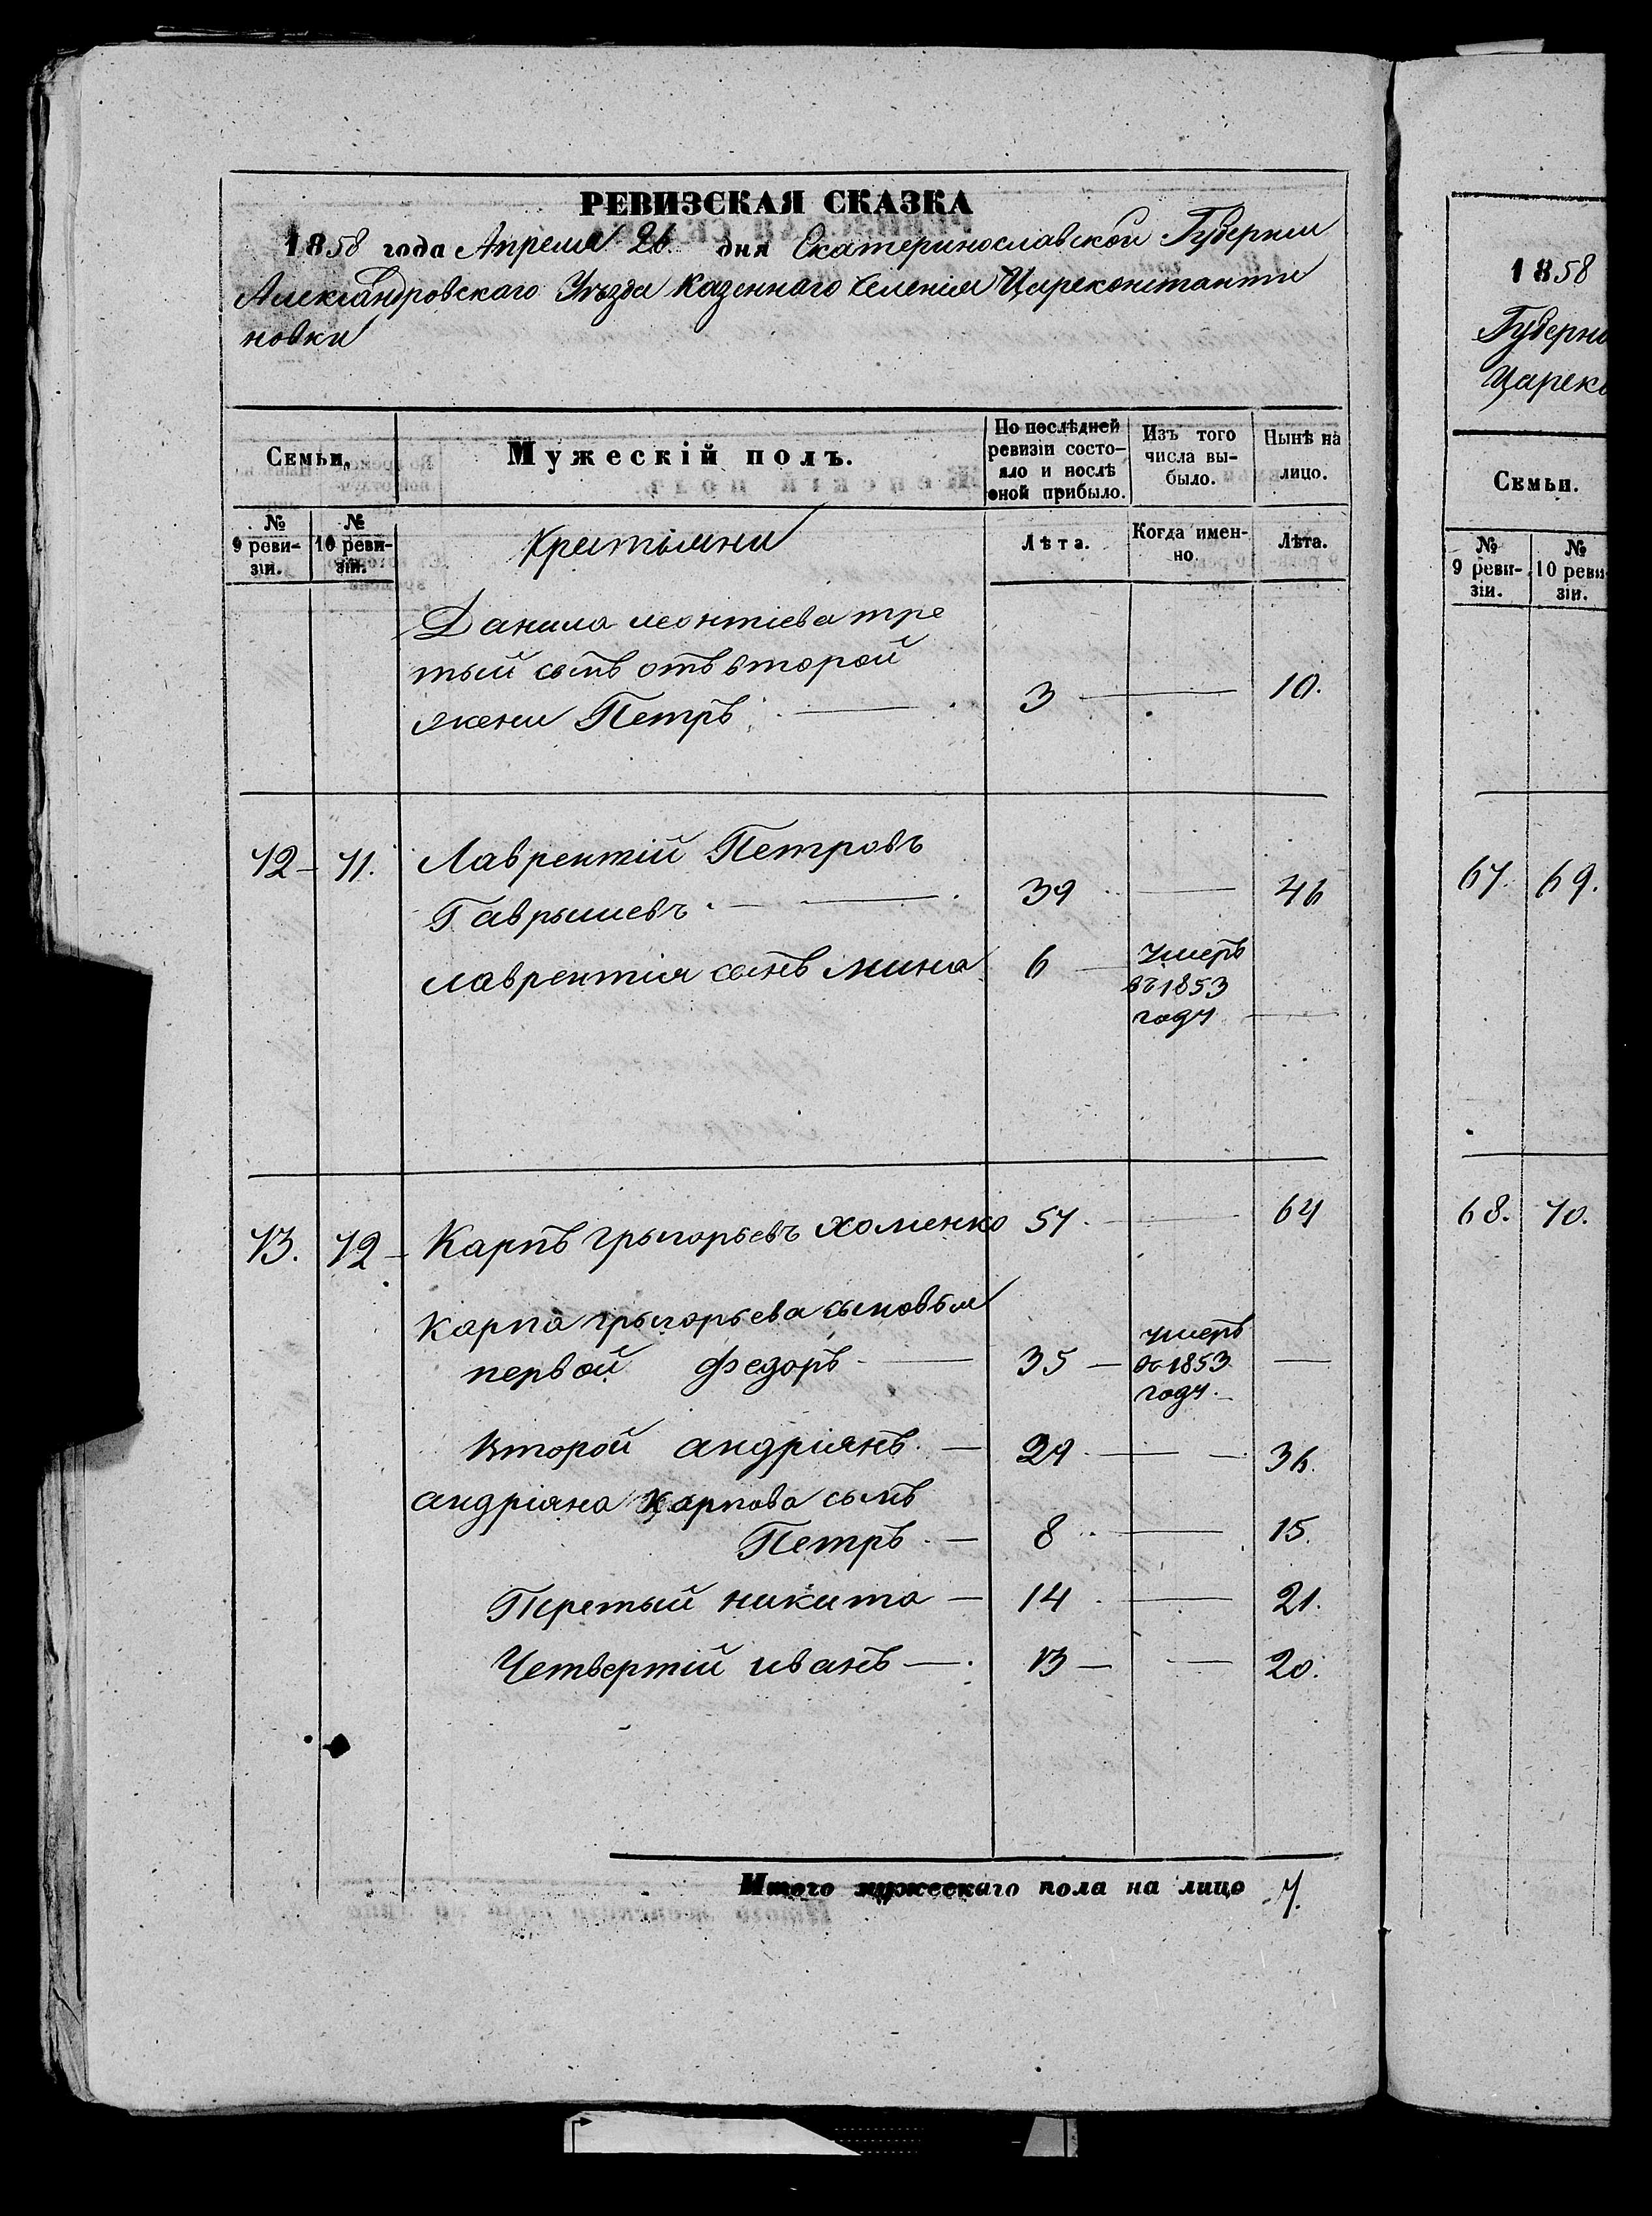 РЕВИЗСКАЯ СКАЗКА
1858 года Апреля 26 дня Екатеринославской Губернии
Александровскаго Уѣзда Казеннаго Селенія Цареконстанти
новки
Семьи.
Мужескій полъ.
По послѣдней ревизіи состо-
яло и послѣ оной прибыло.
Изъ того числа вы-
было.
Нынѣ на лицо.
№ 9 реви-
зіи.
№ 10 реви-
зіи.
Крестьяни
Лѣта.
Когда имен-
но
Лѣта.
Данила леонтіева тре
тый сынъ отъ второй
жени Петръ 3 10.
72 71. Лаврентій Петровъ
Гаврышевъ 39 46
лаврентія сынъ мина 6 Умеръ
въ 1853
году
73. 72 Карпъ грыгорьевъ хоменко 57. 64
Карпа грыгорьева сыновья
первой федоръ 35 умеръ
въ 1853
году
Второй андріянъ 29 36.
андріяна Карпова сынъ
Петръ 8 15.
Третый никита 14 21.
Четвертій иванъ 13 20.
Итого мужескаго пола на лицо 7.
1858
Губерни
Цареко
Семьи.
№ 9 реви-
зіи.
№ 10 реви
зіи.
67. 69.
68. 70.